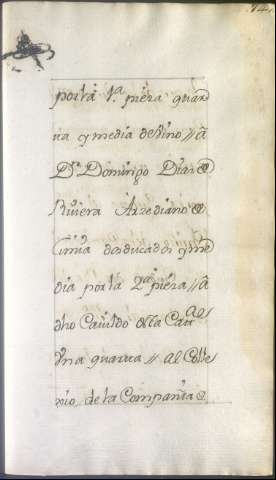 74
por la 1ª piera guar
ta cymedia de Vino // â
Dⁿ Domingo Dias @
Riviera Arzediano @
Cinco ducados y me
dia por la 2ª piera // â
dho Cavildo de la Cat.al
Vna quarta // al Colle
xio de la Compania @